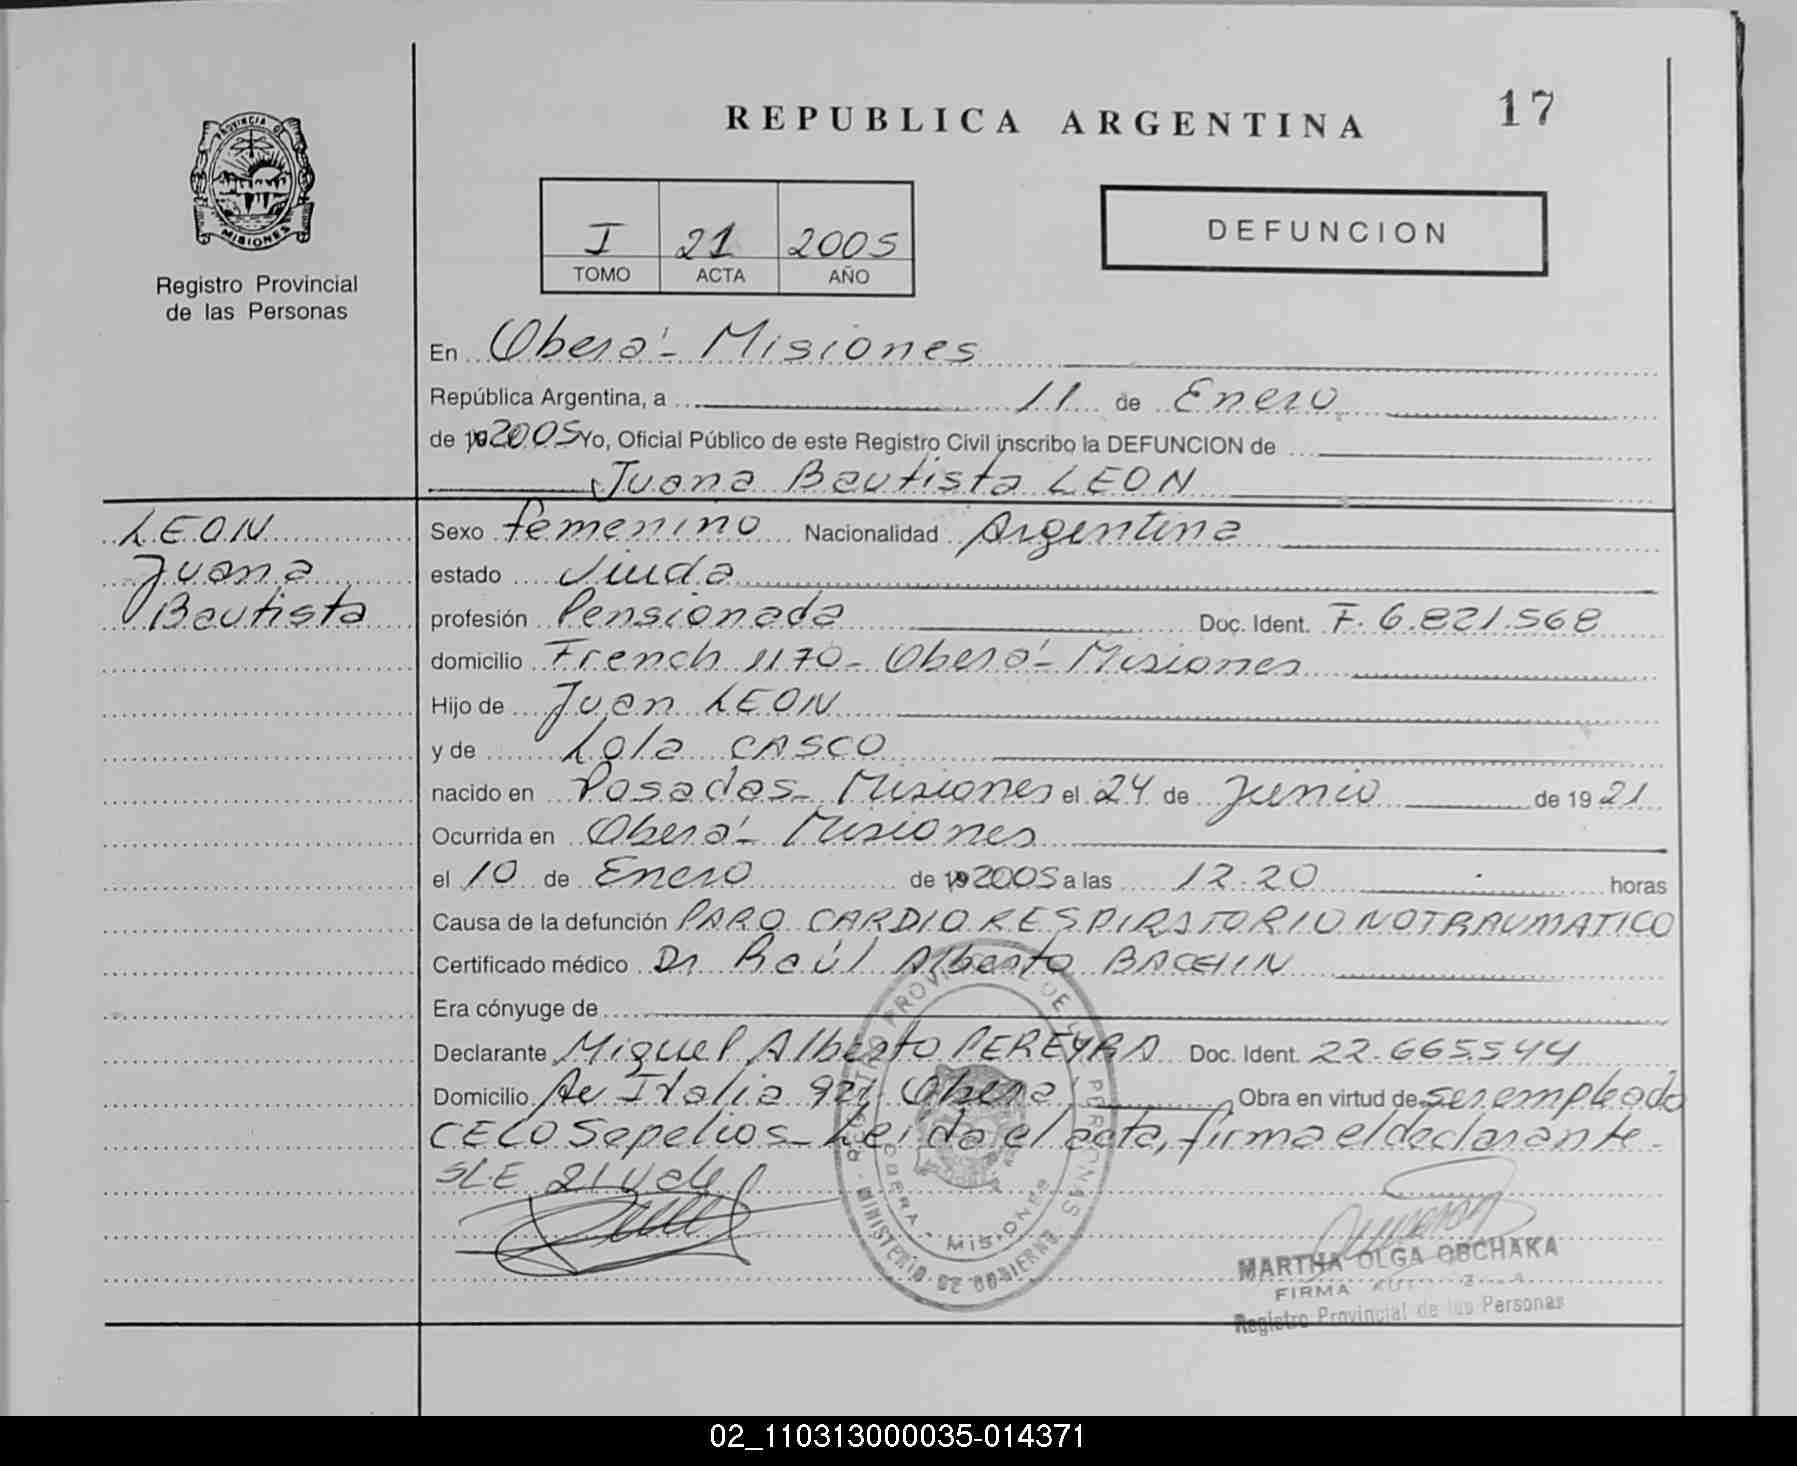 REPUBLICA ARGENTINA
17
PROVINCIA DE MISIONES
Registro Provincial
de las Personas
I 21 2005
TOMO ACTA AÑO
DEFUNCION
En Oberá - Misiones
República Argentina, a 11 de Enero
de 19 2005 Yo, Oficial Público de este Registro Civil inscribo la DEFUNCION de
Juana Bautista LEON
LEON
Juana
Bautista
Sexo femenino Nacionalidad Argentina
estado Viuda
profesión Pensionada Doc. Ident. F. 6.821.568
domicilio French 1170 - Oberá - Misiones
Hijo de Juan LEON
y de Lola CASCO
nacido en Posadas - Misiones el 24 de Junio de 19 21
Ocurrida en Oberá - Misiones
el 10 de Enero de 19 2005 a las 12.20 horas
Causa de la defunción PARO CARDIO RESPIRATORIO NO TRAUMATICO
Certificado médico Dr Raúl Alberto BACHIN
Era cónyuge de
Declarante Miguel Alberto PEREYRA Doc. Ident. 22.665.544
Domicilio Av Italia 921 Oberá Obra en virtud de ser empleado
CELO Sepelios - Leída el acta, firma el declarante -
S/E 21 Vale
REGISTRO PROVINCIAL DE LAS PERSONAS
OBERA - MISIONES
MINISTERIO DE GOBIERNO
MARTHA OLGA OBCHAKA
FIRMA
Registro Provincial de las Personas
02_110313000035-014371